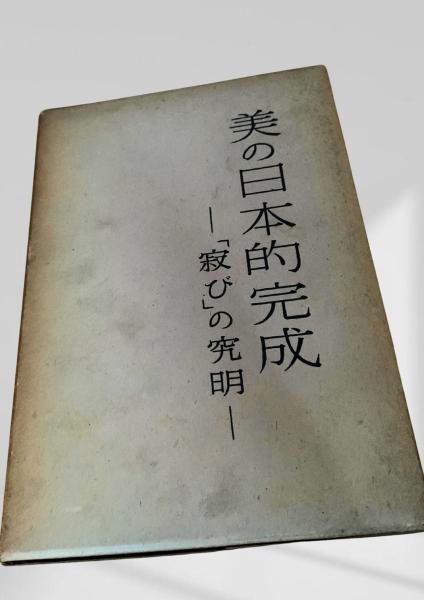 美の日本的完成
―「寂び」の究明―